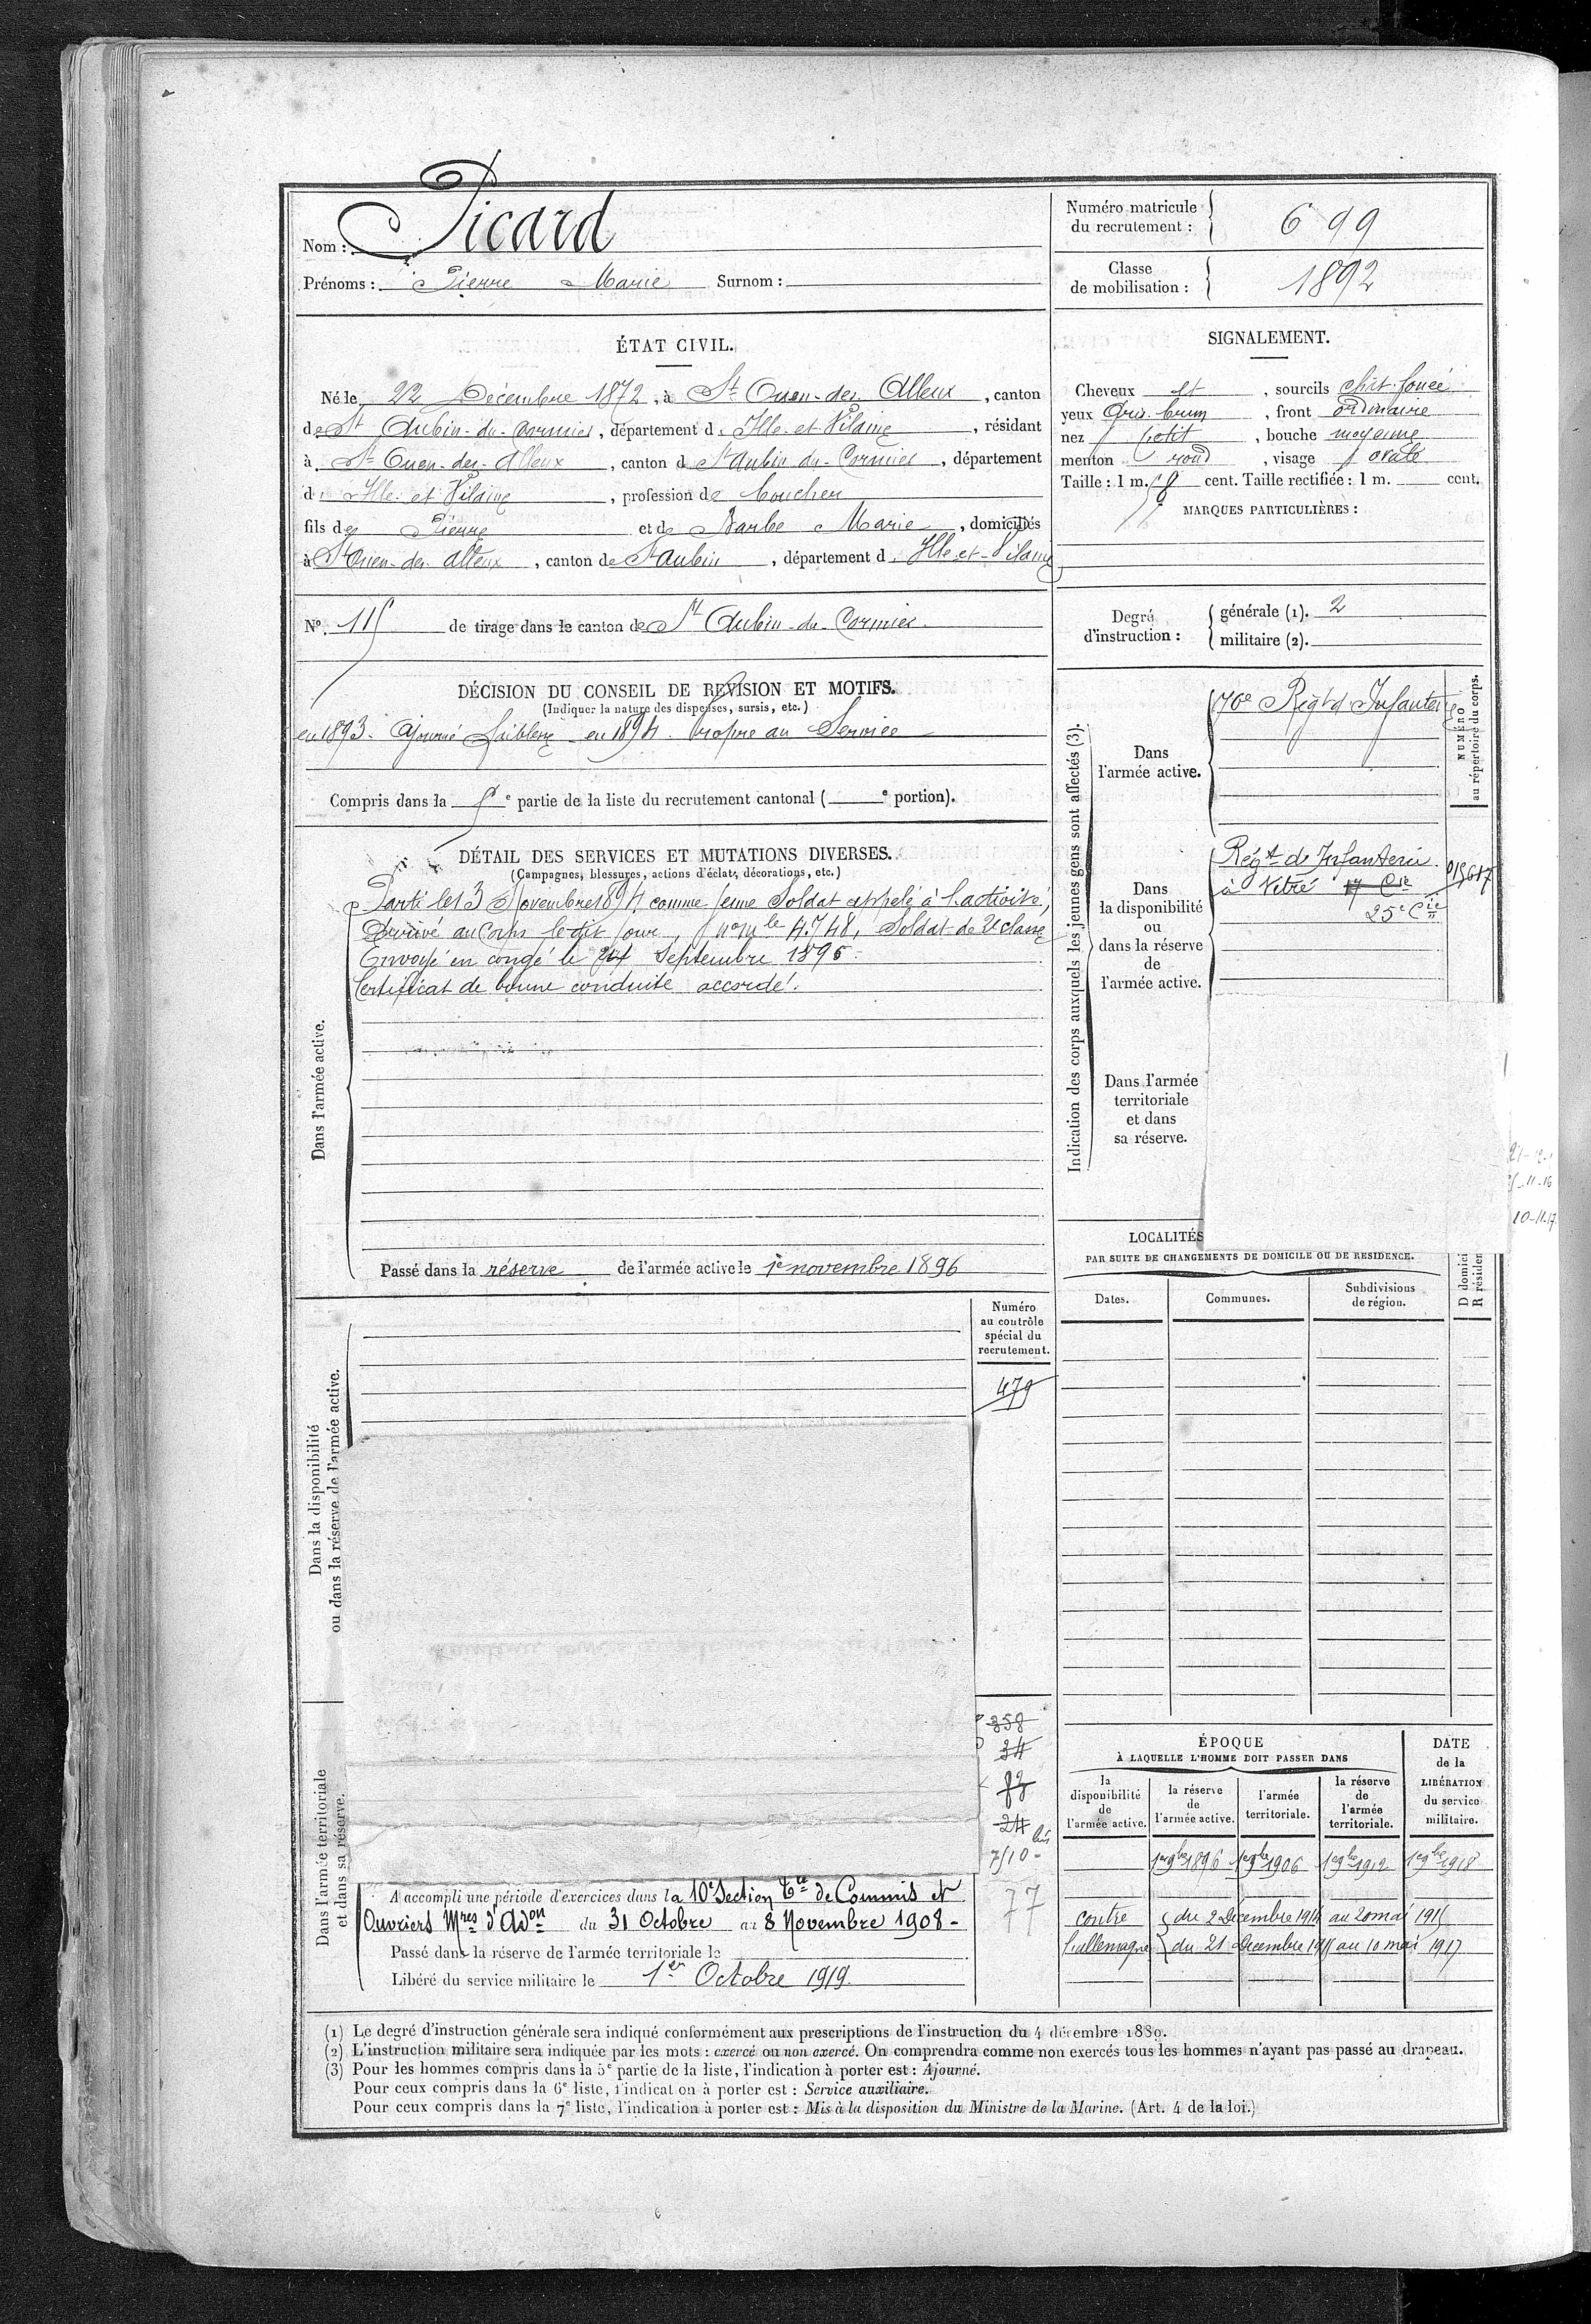 Nom : Picard
Prénoms : Pierre Marie Surnom :
Numéro matricule
du recrutement : 699
Classe
de mobilisation : 1892
ÉTAT CIVIL.
Né le 22 Décembre 1872, à St Ouen-des-Alleux, canton
de St Aubin-du-Cormier, département d'Ille-et-Vilaine, résidant
à St Ouen-des-Alleux, canton de St Aubin-du-Cormier, département
d'Ille-et-Vilaine, profession de boucher
fils de Pierre et de Barbe Marie, domiciliés
à St Ouen-des-Alleux, canton de St Aubin, département d'Ille-et-Vilaine
No. 115 de tirage dans le canton de St Aubin-du-Cormier.
SIGNALEMENT.
Cheveux et, sourcils chât. foncé
yeux gris-brun, front ordinaire
nez petit, bouche moyenne
menton rond, visage ovale
Taille : 1 m. 58 cent. Taille rectifiée : 1 m. cent.
MARQUES PARTICULIÈRES :
Degré
d'instruction :
générale (1). 2
militaire (2).
DÉCISION DU CONSEIL DE REVISION ET MOTIFS.
(Indiquer la nature des dispenses, sursis, etc.)
en 1893. Ajourné faiblesse en 1894. Propre au Service
Compris dans la 5e partie de la liste du recrutement cantonal ( e portion).
DÉTAIL DES SERVICES ET MUTATIONS DIVERSES.
(Campagnes, blessures, actions d'éclat, décorations, etc.)
Dans l'armée active.
Parti le 13 Novembre 1894 comme jeune Soldat appelé à l'activité,
Arrivé au Corps le dit jour, no mle 4.748, Soldat de 2e classe
Envoyé en congé le 24 Septembre 1896.
Certificat de bonne conduite accordé.
Passé dans la réserve de l'armée active le 1er novembre 1896
Indication des corps auxquels les jeunes gens sont affectés (3).
NUMÉRO
au répertoire du corps.
Dans
l'armée active.
70e Régt d'Infanterie
Dans
la disponibilité
ou
dans la réserve
de
l'armée active.
Régt de Infanterie
à Vitré 17 Cie
25e Cie
Dans l'armée
territoriale
et dans
sa réserve.
10-11-17
LOCALITÉS
PAR SUITE DE CHANGEMENTS DE DOMICILE OU DE RESIDENCE.
Dates. Communes. Subdivisions
de région.
D domici
R résiden
Dans la disponibilité
ou dans la réserve de l'armée active.
Numéro
au contrôle
spécial du
recrutement.
479
358
34
82
24
bis
7/10
77
Dans l'armée territoriale
et dans sa réserve.
A accompli une période d'exercices dans la 10e Section Tle de Commis et
Ouvriers Mres d'Adon du 31 Octobre au 8 Novembre 1908 -
Passé dans la réserve de l'armée territoriale le
Libéré du service militaire le 1er Octobre 1919.
ÉPOQUE
À LAQUELLE L'HOMME DOIT PASSER DANS
DATE
de la
LIBÉRATION
du service
militaire.
la
disponibilité
de
l'armée active.
la réserve
de
l'armée active.
l'armée
territoriale.
la réserve
de
l'armée
territoriale.
1er 9bre 1896 1er 9bre 1906 1er 9bre 1912 1er 9bre 1918
contre du 2 Décembre 1914 au 20 mai 1915
l'allemagne du 21 Décembre 1915 au 10 mai 1917
(1) Le degré d'instruction générale sera indiqué conformément aux prescriptions de l'instruction du 4 décembre 1889.
(2) L'instruction militaire sera indiquée par les mots : exercé ou non exercé. On comprendra comme non exercés tous les hommes n'ayant pas passé au drapeau.
(3) Pour les hommes compris dans la 5e partie de la liste, l'indication à porter est : Ajourné.
Pour ceux compris dans la 6e liste, l'indication à porter est : Service auxiliaire.
Pour ceux compris dans la 7e liste, l'indication à porter est : Mis à la disposition du Ministre de la Marine. (Art. 4 de la loi.)